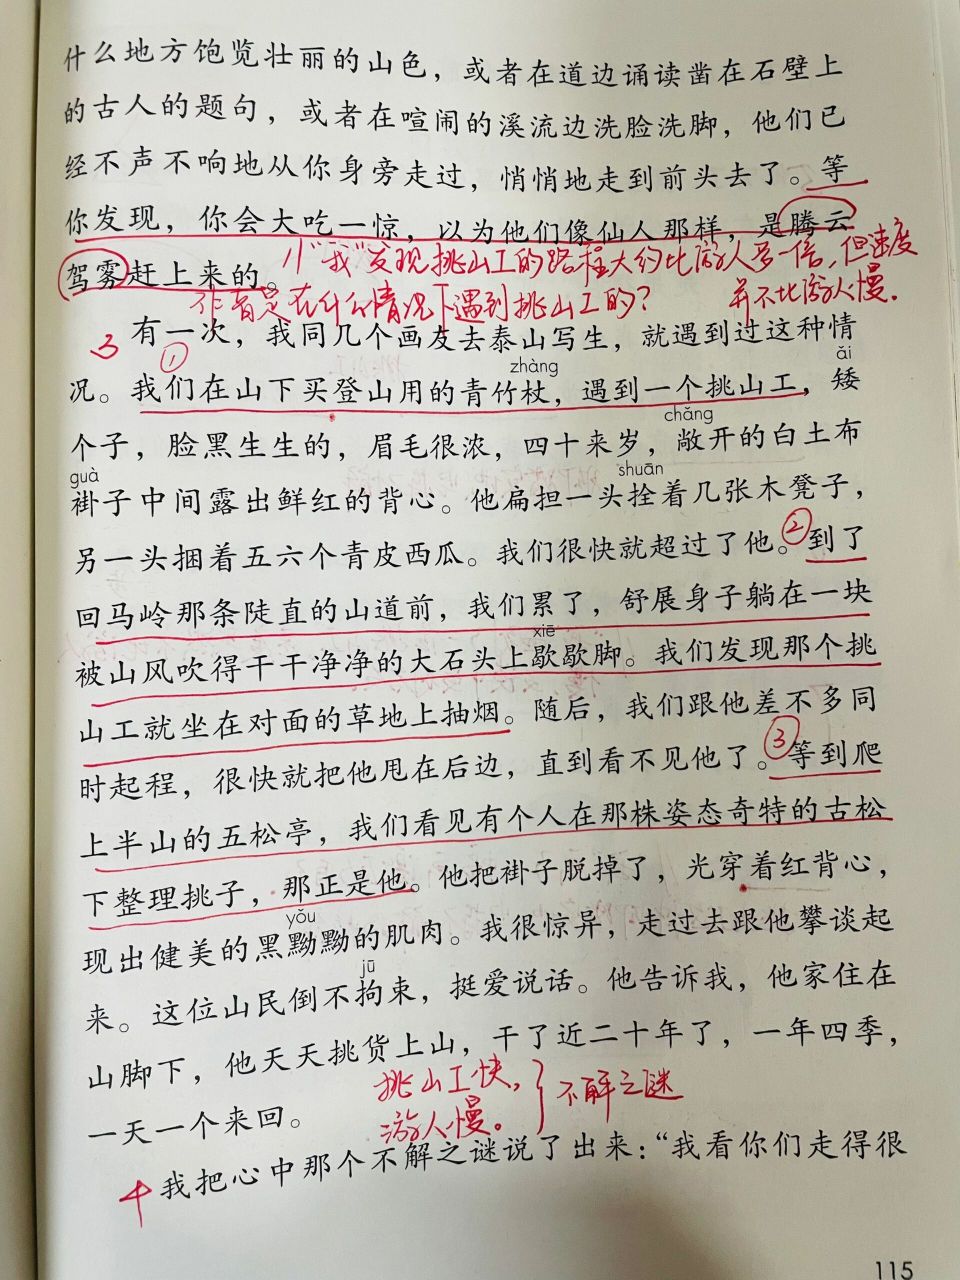 什么地方饱览壮丽的山色，或者在道边诵读凿在石壁上
的古人的题句，或者在喧闹的溪流边洗脸洗脚，他们已
经不声不响地从你身旁走过，悄悄地走到前头去了。等
你发现，你会大吃一惊，以为他们像仙人那样，是腾云
驾雾赶上来的。
"我"发现挑山工的路程大约比游人多一倍，但速度
并不比游人慢.
作者是在什么情况下遇到挑山工的？
3
有一次，我同几个画友去泰山写生，就遇到过这种情
①
zhàng
ǎi
况。我们在山下买登山用的青竹杖，遇到一个挑山工，矮
chǎng
个子，脸黑生生的，眉毛很浓，四十来岁，敞开的白土布
guà
shuān
褂子中间露出鲜红的背心。他扁担一头拴着几张木凳子，
②
另一头捆着五六个青皮西瓜。我们很快就超过了他。到了
回马岭那条陡直的山道前，我们累了，舒展身子躺在一块
xiē
被山风吹得干干净净的大石头上歇歇脚。我们发现那个挑
山工就坐在对面的草地上抽烟。随后，我们跟他差不多同
③
时起程，很快就把他甩在后边，直到看不见他了。等到爬
上半山的五松亭，我们看见有个人在那株姿态奇特的古松
下整理挑子，那正是他。他把褂子脱掉了，光穿着红背心，
yǒu
现出健美的黑黝黝的肌肉。我很惊异，走过去跟他攀谈起
jū
来。这位山民倒不拘束，挺爱说话。他告诉我，他家住在
山脚下，他天天挑货上山，干了近二十年了，一年四季，
一天一个来回。
挑山工快，
游人慢。
不解之谜
4
我把心中那个不解之谜说了出来：“我看你们走得很
115